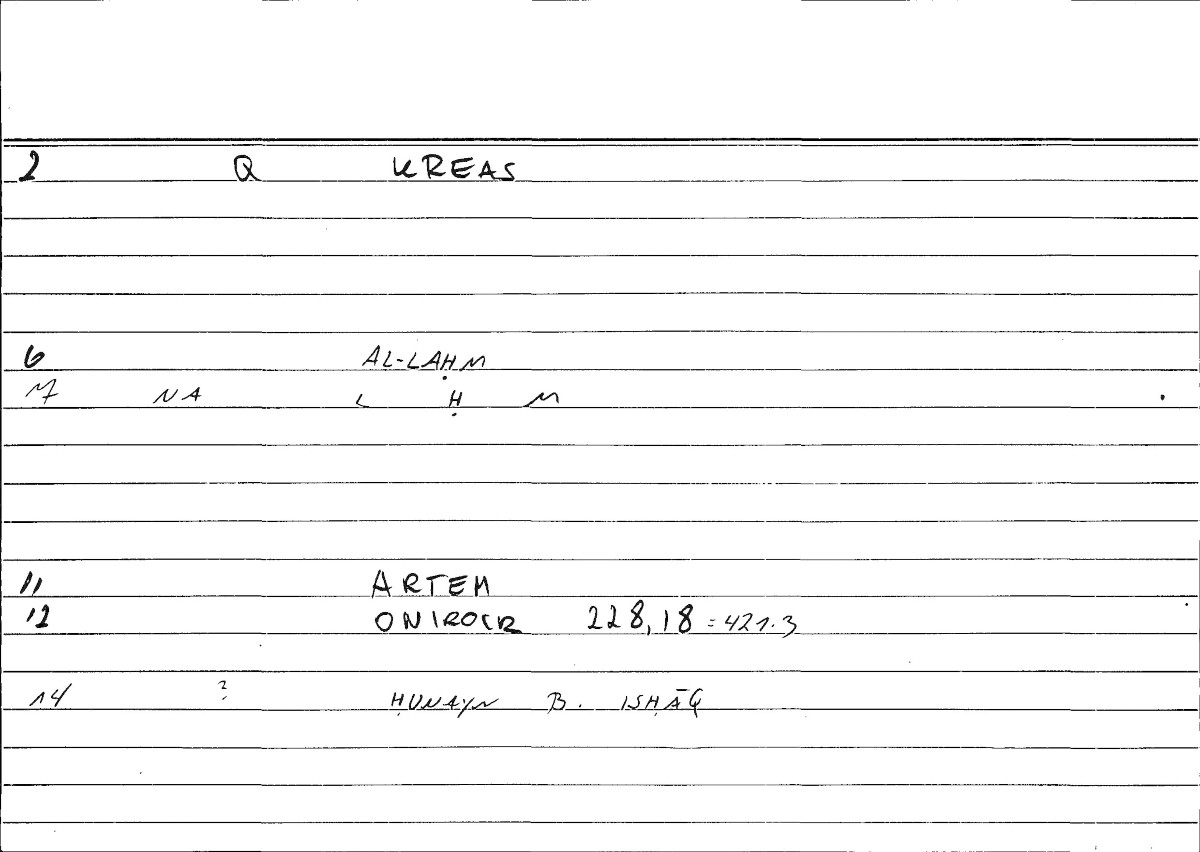 2 Q KREAS
6 AL-LAḤM
7 NA L Ḥ M
11 ARTEM
12 ONIROCR 228,18 = 421.3
14 ? ḤUNAYN B. ISḤĀQ